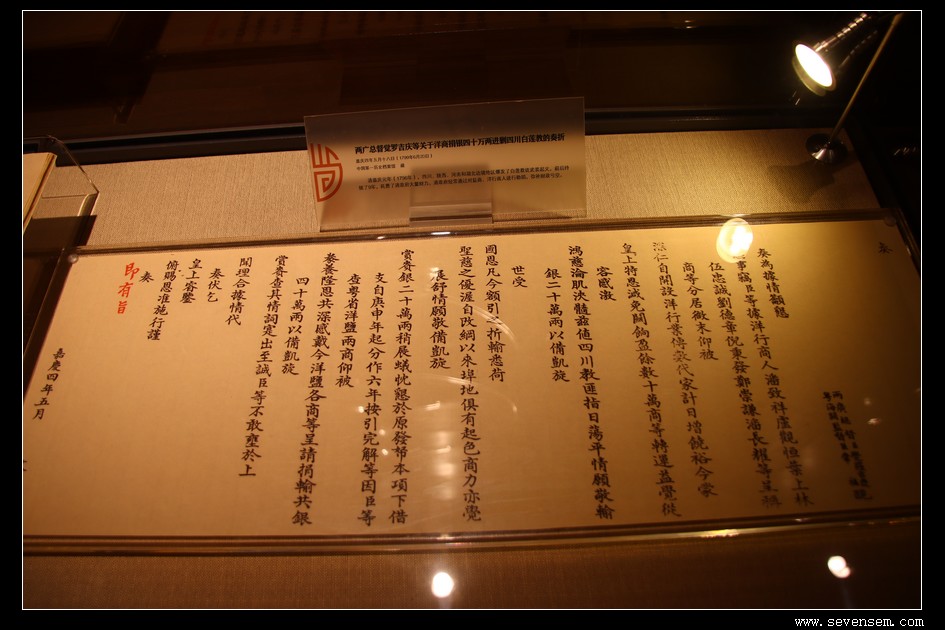 两广总督觉罗吉庆等关于洋商捐银四十万两进剿四川白莲教的奏折
嘉庆四年五月十八日（1799年6月20日）
中国第一历史档案馆 藏
奏
奏為據情籲懇
事竊臣等據洋行商人潘致祥盧觀恒葉上林
伍忠誠劉德章倪秉發鄭崇謙潘長耀等呈稱
商等分居微末仰被
深仁自開設洋行業傳家計日增饒裕今蒙
皇上特恩誠免關餉盈餘數十萬商等轉運益覺從
容感激
鴻慈淪肌浹髓茲值四川教匪指日蕩平情願敬輸
銀二十萬兩以備凱旋
世受
國恩凡今額引之折輸悉荷
聖慈之優渥自改綱以來埠地俱有起色商力亦覺
展舒情願敬備凱旋
賞賚銀二十萬兩稍展蟻忱懇於原發帑本項下借
支自庚申年起分作六年按引完解等因臣等
查粵省洋鹽兩商仰被
豢養隆恩共深感戴今洋鹽各商等呈請捐輸共銀
四十萬兩以備凱旋
賞賚查其情詞寔出至誠臣等不敢壅於上
聞理合據情代
奏伏乞
皇上睿鑒
俯賜恩准施行謹
奏
即有旨
嘉慶四年五月
www.sevensem.com